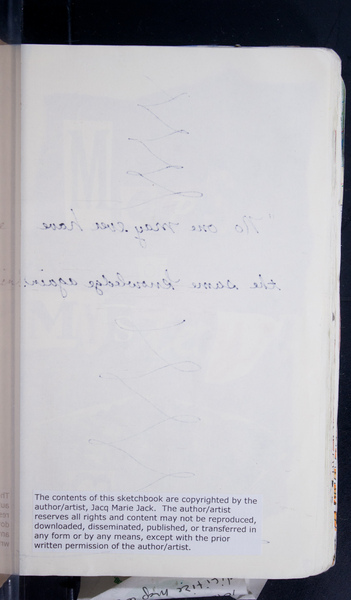 "No one may ever have
the same knowledge again
The contents of this sketchbook are copyrighted by the
author/artist, Jacq Marie Jack. The author/artist
reserves all rights and content may not be reproduced,
downloaded, disseminated, published, or transferred in
any form or by any means, except with the prior
written permission of the author/artist.